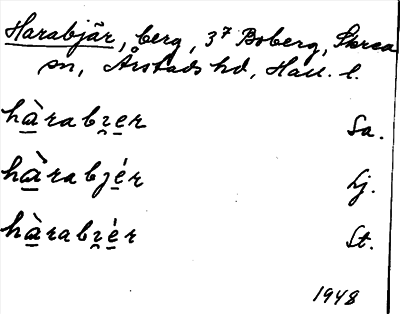 Harabjär, berg, 3⁷ Boberg, Skrea
sn, Årstads hd, Hall. l.
hàrabɪ̯er Sa.
hàrabjér Lj.
hàrabɪ̯ér St.
1948